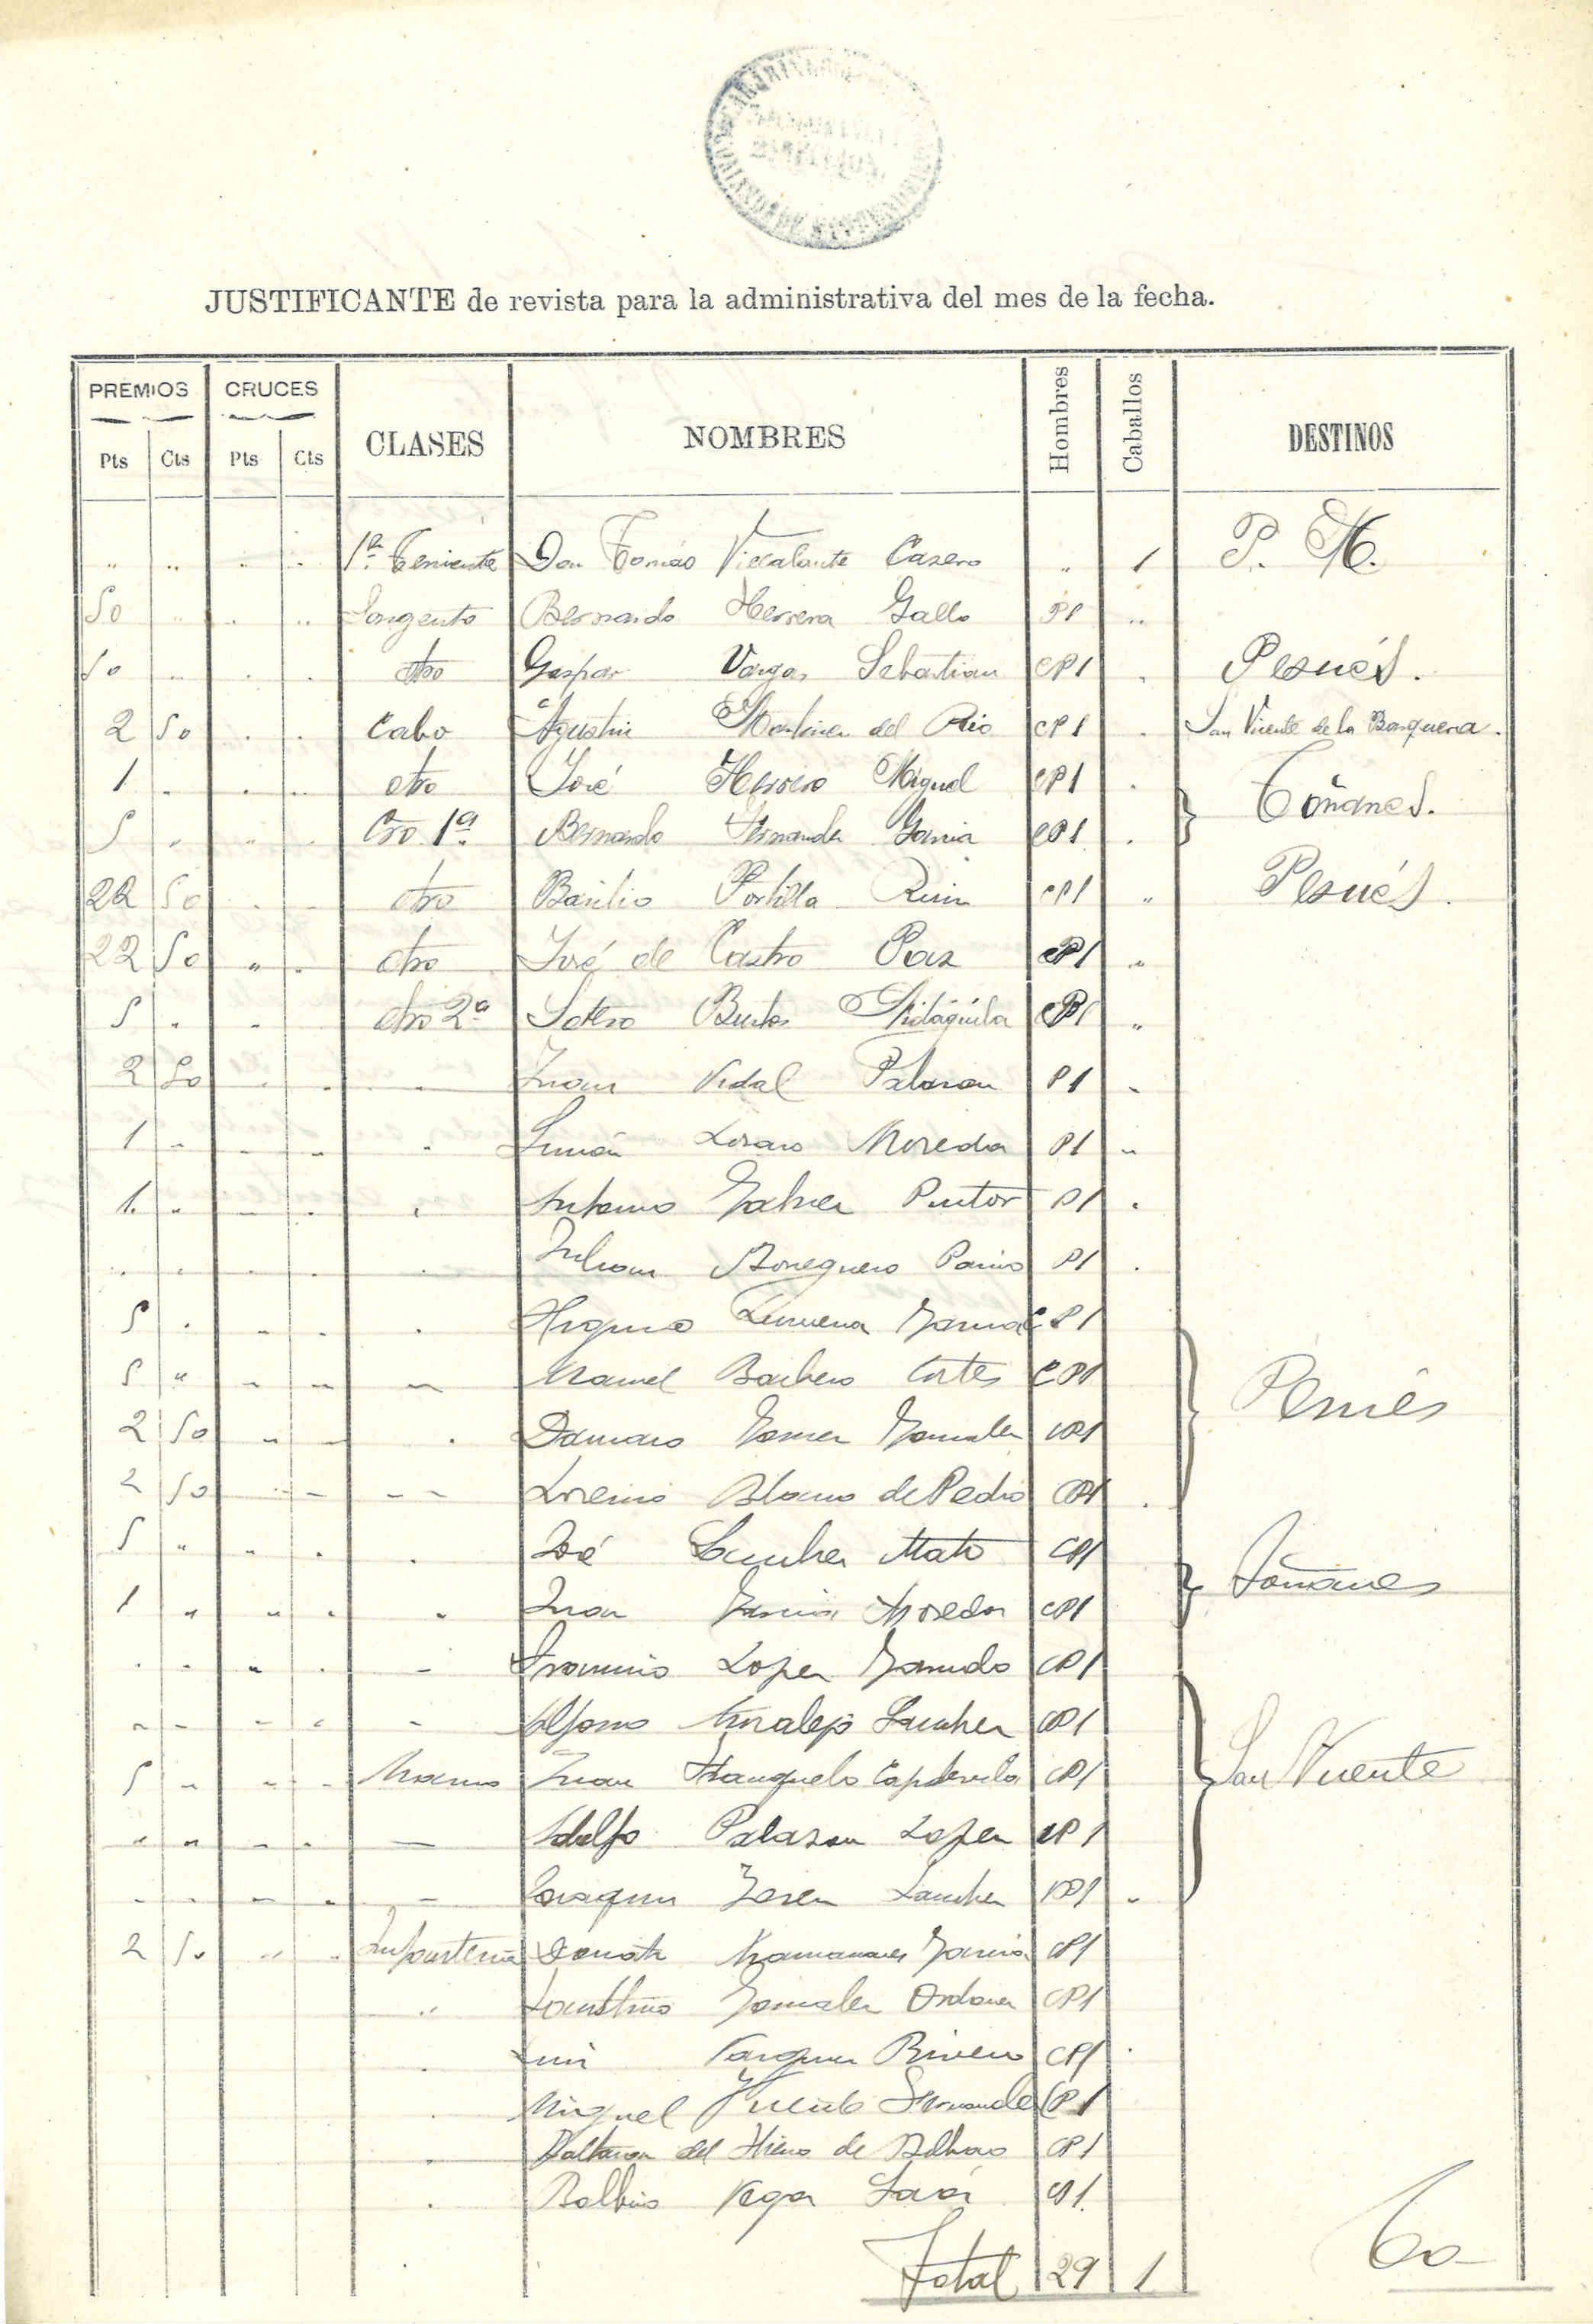 JUSTIFICANTE de revista para la administrativa del mes de la fecha.
PREMIOS CRUCES CLASES NOMBRES Hombres Caballos DESTINOS
Pts Cts Pts Cts
" " " " 1er Teniente Don Tomás Casero " 1 P. M.
50 " " " Sargento Bernardo Herrera Gallo P1 "
50 " " " otro Gaspar Vargas Sebastian CP1 " Pesués.
2 50 " " Cabo Agustin Martinez del Rio CP1 " San Vicente de la Barquera.
1 " " " otro José Herrero Miguel CP1 " Toñanes.
5 " " " Gro. 1ª Bernardo Fernandez Garcia CP1 "
22 50 " " otro Basilio Portilla CP1 " Pesués.
22 50 " " otro José de Castro Paz CP1 "
5 " " otro 2ª Sotero Bustos CP1 "
2 50 " " " Juan Vidal Palazon P1 "
1 " " " " Simón Lozano Moreda P1 "
1 " " " " Antonio Galvez Pintor P1 "
" " " " " Julian P1 "
5 " " " " Higinio Garcia CP1
5 " " " " Manuel Barbero Cortes CP1 Pesués
2 50 " " " Damaso Gomez Gonzalez CP1
2 50 " " " Lorenzo Alonso de Pedro CP1 "
5 " " " " José Sanchez Mato CP1 Toñanes
1 " " " " Juan Garcia Moreda CP1
" " " " " Francisco Lopez CP1
" " " " " Alfonso Miralejo Sanchez CP1
5 " " " Juan Capdevila CP1 San Vicente
" " " " — Adolfo Palazon Lopez CP1
" " " " — Joaquin Perez Sanchez CP1 "
2 50 " " Infanteria Donato Garcia CP1
" Faustino Gonzalez CP1
" Luis Vazquez Rivero CP1 "
" Miguel Vicente Fernandez CP1
" Baltasar del Hierro de CP1
" Balbino Vega CP1
Total 29 1